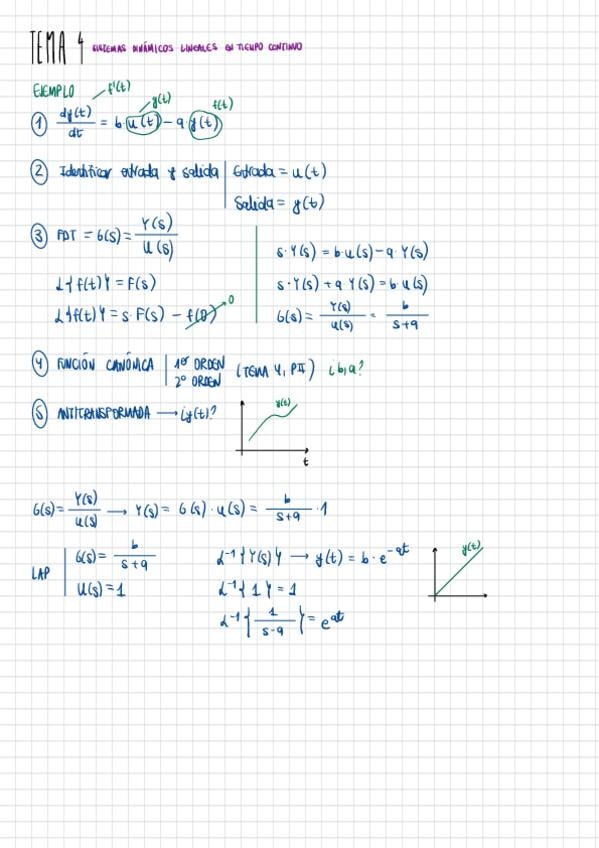 TEMA 4 SISTEMAS DINÁMICOS LINEALES EN TIEMPO CONTINUO
EJEMPLO f'(t) y(t) f(t)
① dy(t)/dt = b·u(t) - a·y(t)
② Identificar entrada y salida | Entrada = u(t)
Salida = y(t)
③ FDT = G(s) = Y(s)/U(s)
L{f(t)} = F(s)
L{f(t)} = s·F(s) - f(0) 0
s·Y(s) = b·u(s) - a·Y(s)
s·Y(s) + a Y(s) = b·u(s)
G(s) = Y(s)/u(s) = b/(s+a)
④ FUNCIÓN CANÓNICA | 1er ORDEN (TEMA 4, PII) ¿b,a?
2º ORDEN
⑤ ANTITRANSFORMADA → ¿y(t)?
y(t)
t
G(s) = Y(s)/u(s) → Y(s) = G(s)·u(s) = b/(s+a) ·1
LAP | G(s) = b/(s+a)
U(s) = 1
L⁻¹{Y(s)} → y(t) = b·e^-at
L⁻¹{1} = 1
L⁻¹{1/(s-a)} = e^at
y(t)